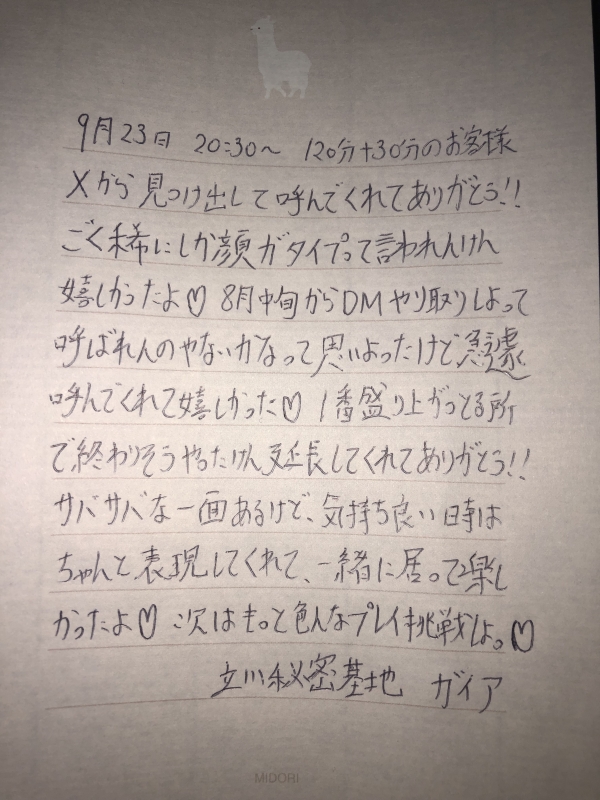 9月23日 20:30〜 120分+30分のお客様
Xから見つけ出して呼んでくれてありがとう!!
ごく稀にしか顔がタイプって言われんけん
嬉しかったよ♡ 8月中旬からDMやり取りしよって
呼ばれんのやないかなって思いよったけど急遽
呼んでくれて嬉しかった♡ 1番盛り上がっとる所
で終わりそうやったけん延長してくれてありがとう!!
サバサバな一面あるけど、気持ち良い時は
ちゃんと表現してくれて、一緒に居って楽し
かったよ♡ 次はもっと色んなプレイ挑戦しよ。♡
立川秘密基地 ガイア
MIDORI